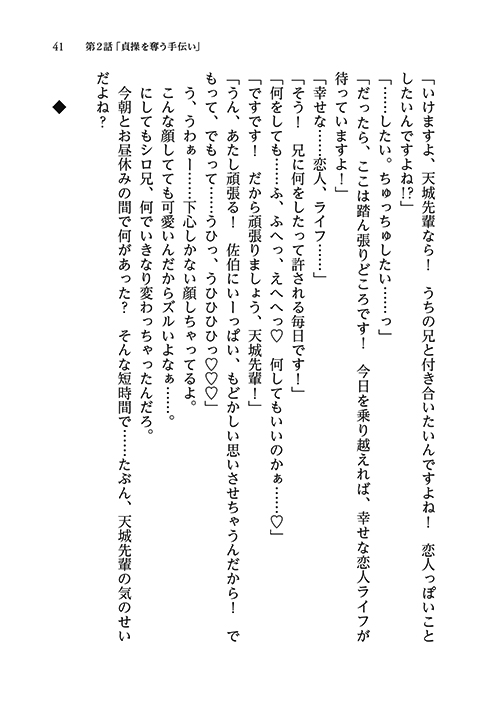 41　第２話「貞操を奪う手伝い」
「いけますよ、天城先輩なら！　うちの兄と付き合いたいんですよね！　恋人っぽいこと
したいんですよね!?」
「……したい。ちゅっちゅしたい……っ」
「だったら、ここは踏ん張りどころです！　今日を乗り越えれば、幸せな恋人ライフが
待っていますよ！」
「幸せな……恋人、ライフ……」
「そう！　兄に何をしたって許される毎日です！」
「何をしても……ふ、ふへっ、えへへっ♡　何してもいいのかぁ……♡」
「ですです！　だから頑張りましょう、天城先輩！」
「うん、あたし頑張る！　佐伯にいーっぱい、もどかしい思いさせちゃうんだから！　で
もって、でもって……うひっ、うひひひひっ♡♡♡」
う、うわぁー……下心しかない顔しちゃってるよ。
こんな顔してても可愛いんだからズルいよなぁ……。
にしてもシロ兄、何でいきなり変わっちゃったんだろ。
今朝とお昼休みの間で何があった？　そんな短時間で……たぶん、天城先輩の気のせい
だよね？
◆